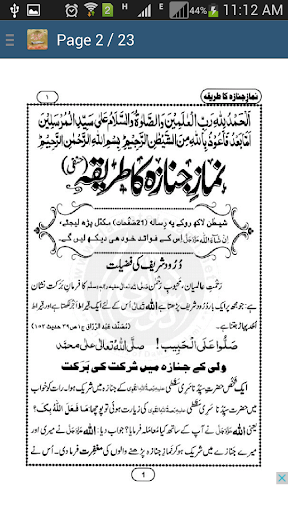 11:12 AM
Page 2 / 23
۱ نمازِ جنازہ کا طریقہ
اَلْحَمْدُ لِلّٰہِ رَبِّ الْعٰلَمِیْنَ وَالصَّلٰوۃُ وَالسَّلَامُ عَلٰی سَیِّدِ الْمُرْسَلِیْنَ
اَمَّا بَعْدُ فَاَعُوْذُ بِاللّٰہِ مِنَ الشَّیْطٰنِ الرَّجِیْمِ بِسْمِ اللّٰہِ الرَّحْمٰنِ الرَّحِیْمِ
نمازِ جنازہ کا طریقہ (حنفی)
شیطٰن لاکھ روکے یہ رسالہ (21صفحات) مکمّل پڑھ لیجئے
اِنْ شَآءَاللہ عَزَّوَجَلَّ اِس کے فوائد خود ہی دیکھ لیں گے
دُرُود شریف کی فضیلت
رَحمتِ عالمیان، محبوبِ رَحمٰن کا فرمانِ بَرَکت نشان
ہے: جو مجھ پر ایک بار دُرُود شریف پڑھتا ہے اللہ تعالیٰ اُس کے لئے ایک قیراط اَجر لکھتا ہے اور قیراط
اُحُد پہاڑ جتنا ہے۔ (مُصَنَّف عبد الرّزاق ج۱ ص۳۹ حدیث ۱۵۳)
صَلُّوْا عَلَی الْحَبِیْب! صَلَّی اللہُ تعالٰی علٰی محمَّد
ولی کے جنازہ میں شرکت کی بَرَکت
ایک شخص حضرتِ سیِّدُنا سَری سَقَطی کے جنازہ میں شریک ہوا۔ رات کو خواب
میں حضرتِ سیِّدُنا سَری سَقَطی کی زیارت ہوئی تو پوچھا: مَا فَعَلَ اللہُ بِکَ؟
یعنی اللہ نے آپ کے ساتھ کیا مُعامَلہ فرمایا؟ جواب دیا: اللہ نے میری اور
میرے جنازے میں شریک ہو کر نمازِ جنازہ پڑھنے والوں کی مغفِرت فرما دی۔
1